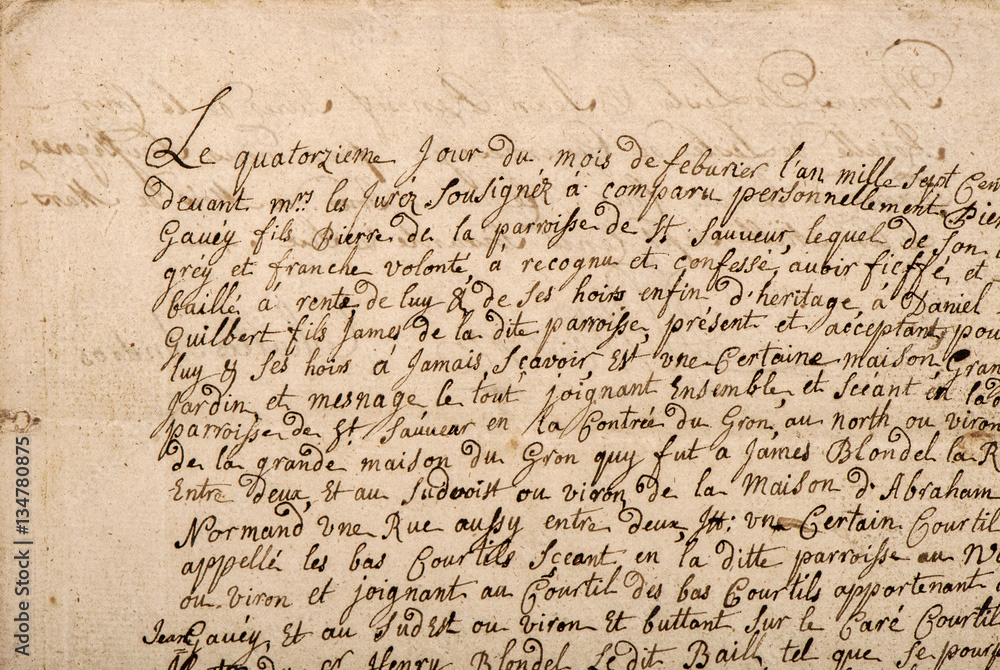 Le quatorzieme Jour du mois de feburier l'an mille sept Cen
deuant mrs les Juréz sousignéz á comparu personnellement Pier
Gauey fils Pierre de la parroisse de St Sauueur, lequel de son
gréy et franche volonté, á recognu et confessé, auoir fieffé, et
baillé á rente de luy & de ses hoirs enfin d'heritage, á Daniel
Guilbert fils James de la dite parroisse, présent et acceptant pou
luy & ses hoirs á Jamais, sçavoir, Est vne Certaine maison Gran
Jardin, et mesnage le tout joignant Ensemble, et sceant en la d
parroisse de St Sauueur en la Contrée du Gron, au north ou viron
de la grande maison du Gron quy fut a James Blondel la R
Entre deux, Et au Sudvoist ou viron de la maison d'Abraham
Normand vne Rue aussy entre deux, Itt: vn Certain Courtil
appellé les bas Courtils Sceant en la ditte parroisse au
ou viron et joignant au Courtil des bas Courtils appartenant
Jean Gauéy, Et au sudEst ou viron Et buttant sur le Caré Courtil
du Sr Henry Blondel Ledit Bail tel que se pours
Adobe Stock | #134780875